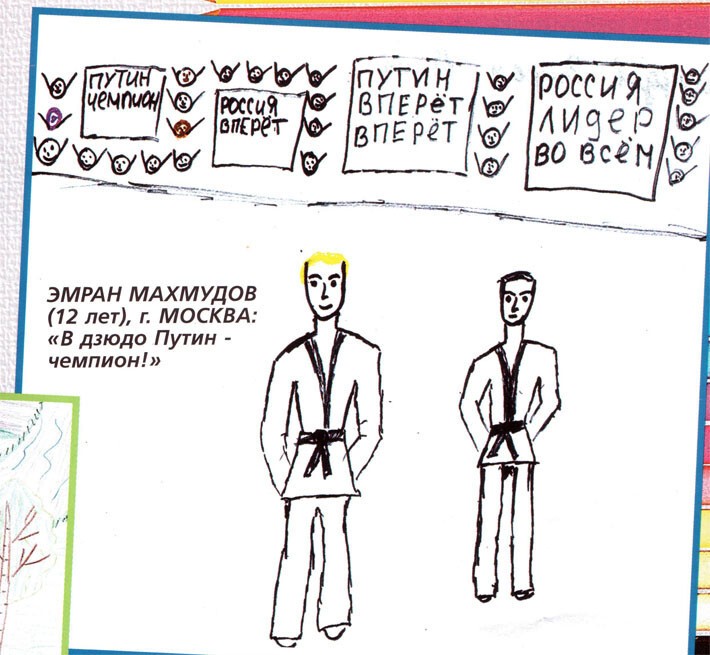 ПУТИН
ЧЕМПИОН
РОССИЯ
ВПЕРЁТ
ПУТИН
ВПЕРЁТ
ВПЕРЁТ
РОССИЯ
ЛИДЕР
ВО ВСЁМ
ЭМРАН МАХМУДОВ
(12 лет), г. МОСКВА:
«В дзюдо Путин -
чемпион!»